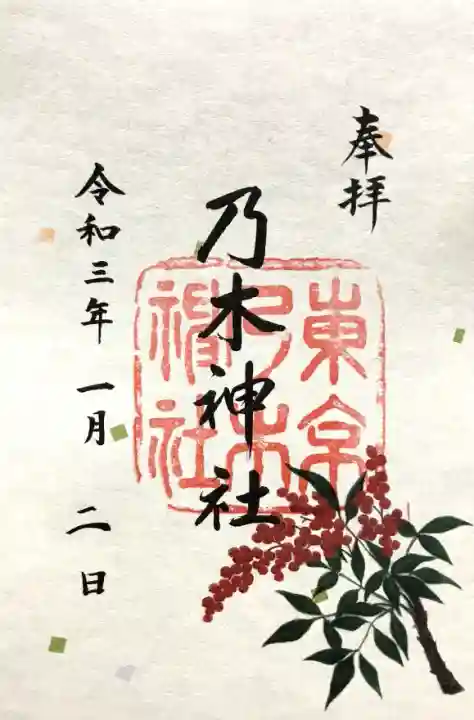 奉拝
乃木神社
東京
乃木
神社
令和三年一月二日